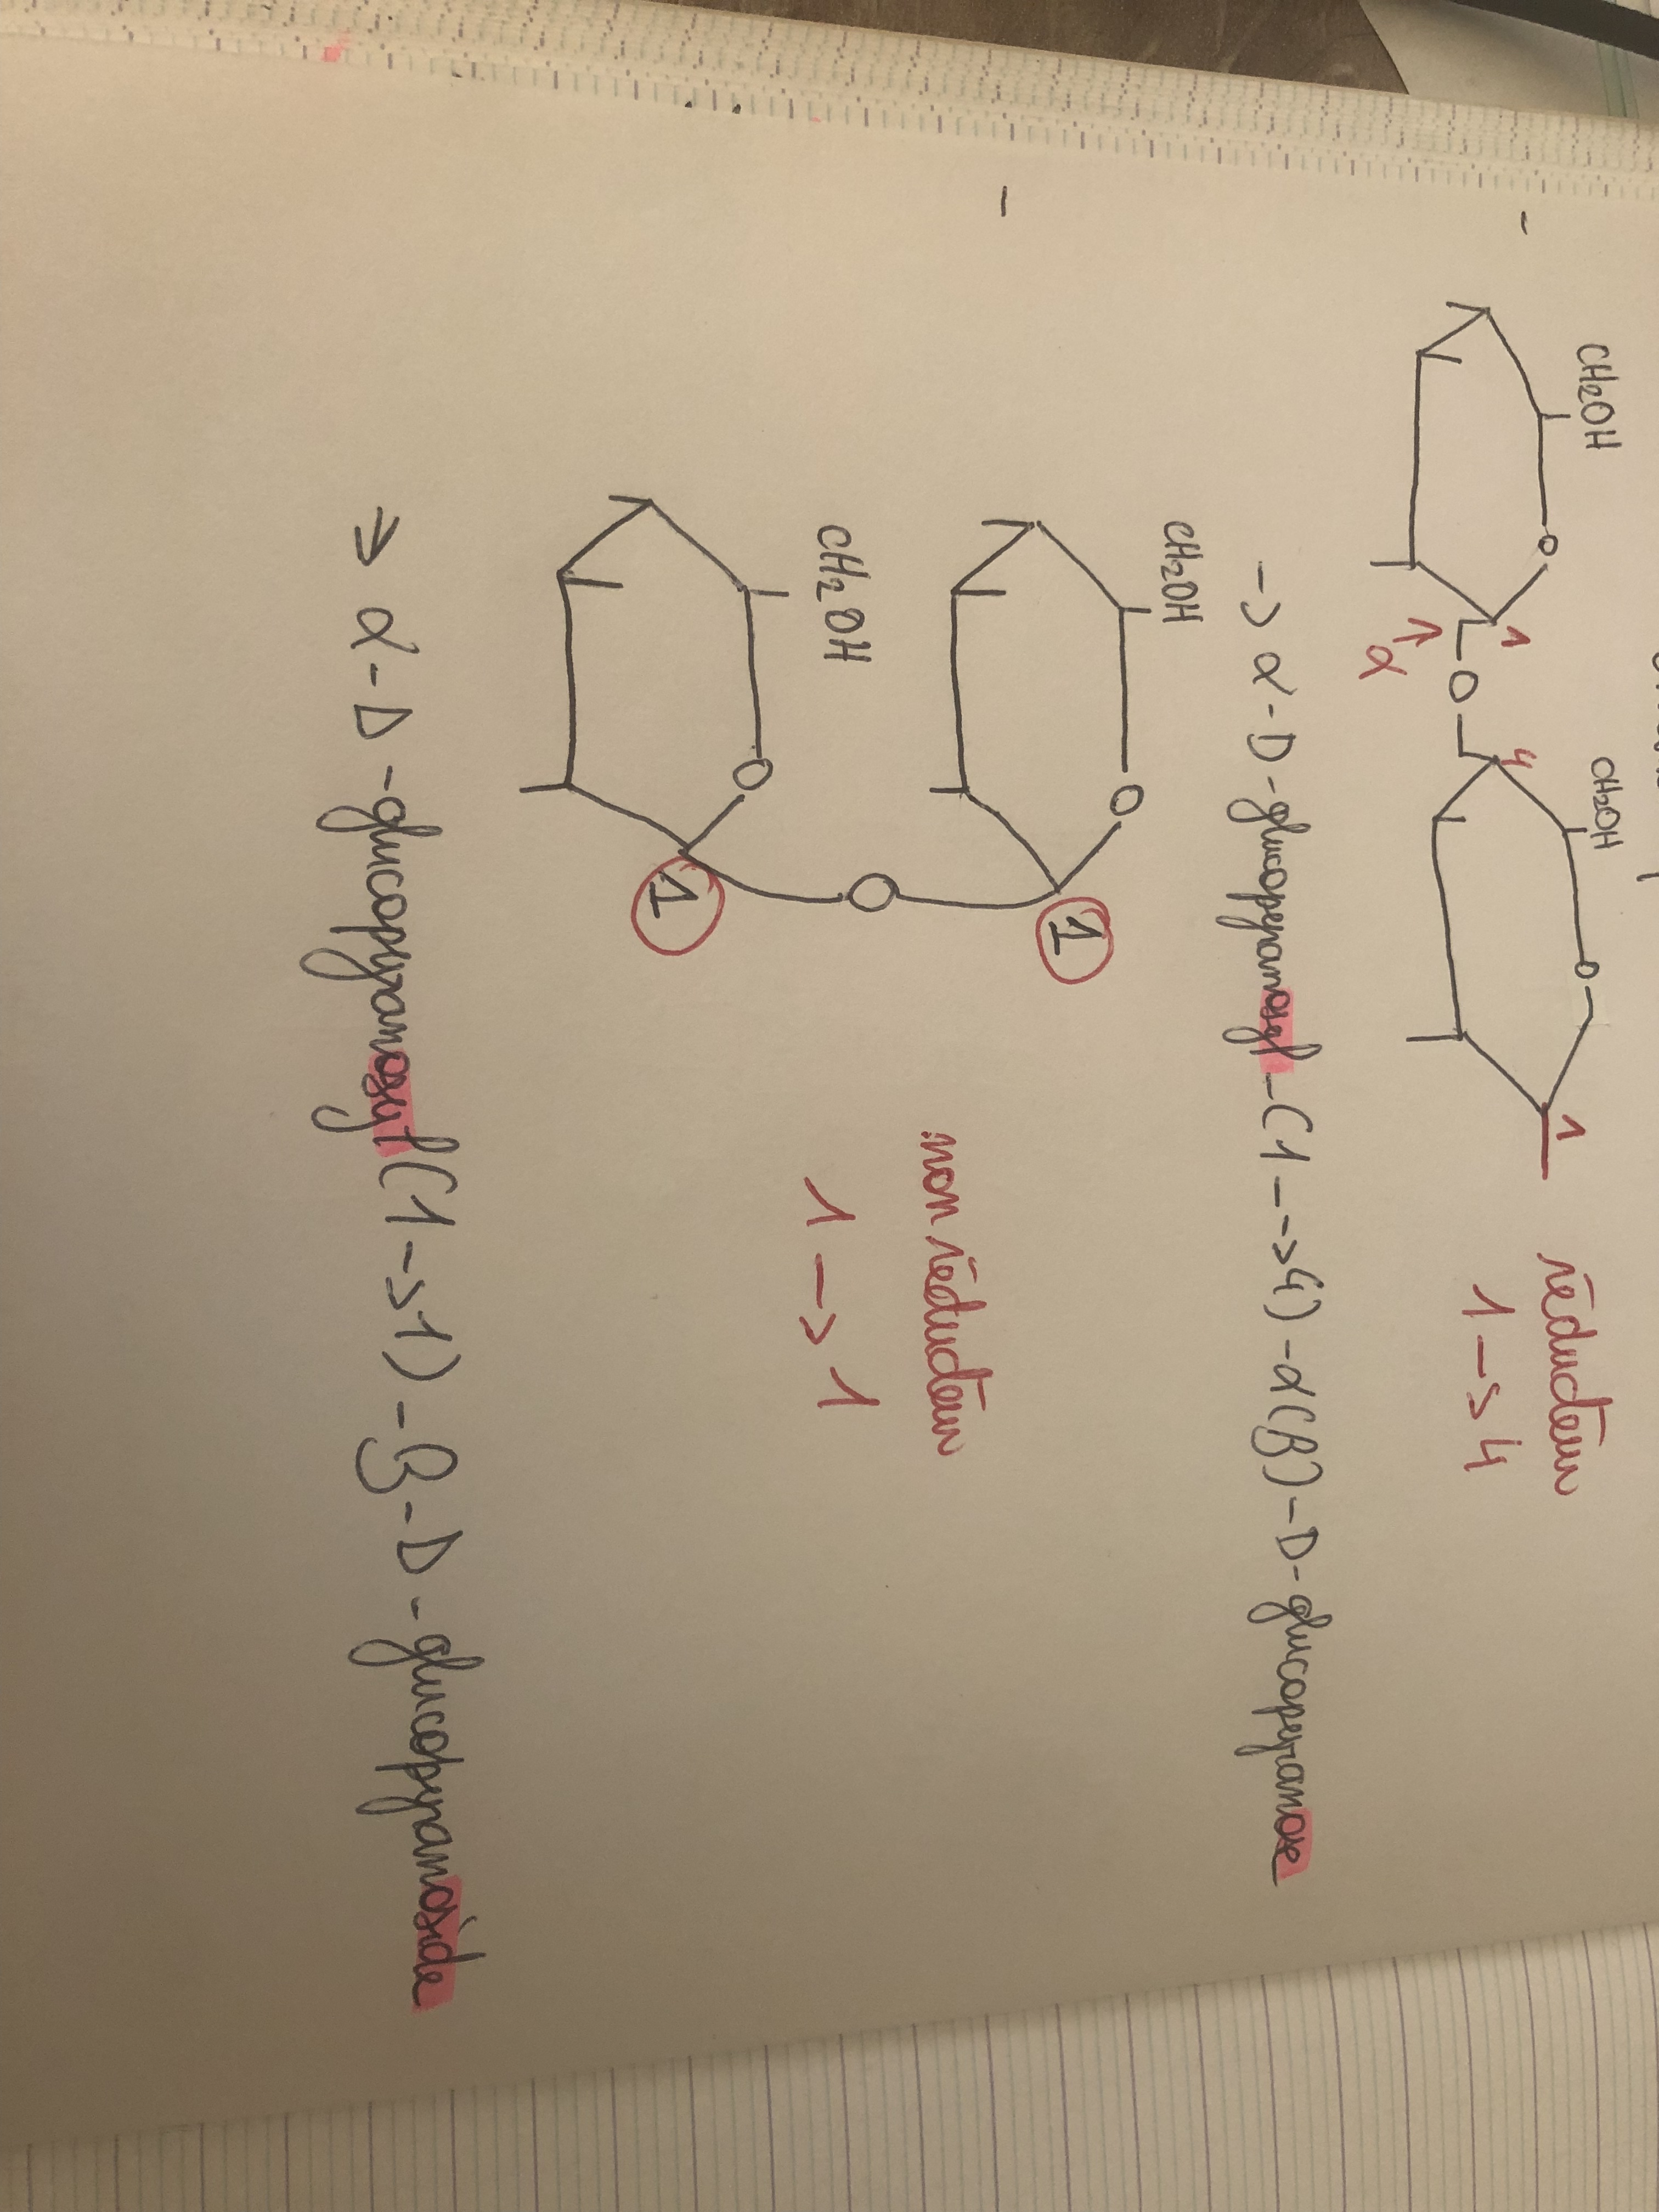 CH2OH CH2OH
O O
1 4 1
O
↑
α
réducteur
1 -> 4
-> α-D-glucopyranosyl-(1-->4)-α(β)-D-glucopyranose
-
CH2OH
O
1
non réducteur
O
1 -> 1
CH2OH
O
1
=> α-D-glucopyranosyl(1->1)-β-D-glucopyranoside